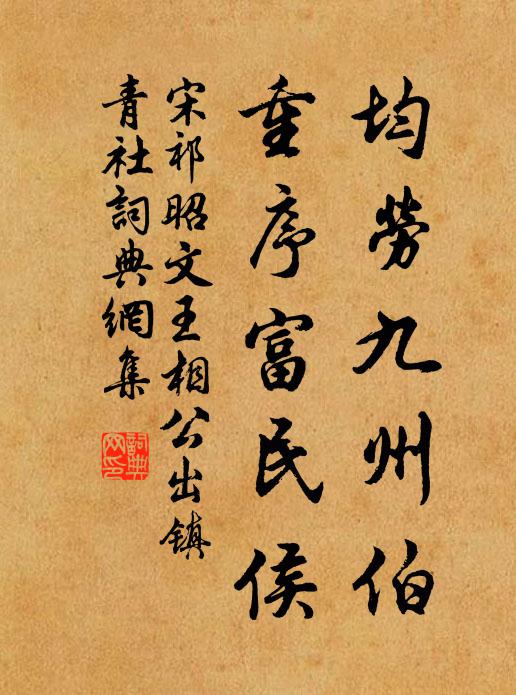 均勞九州伯
重序富民侯
宋祁昭文王相公出鎮
青社詞典網集
詞典网印